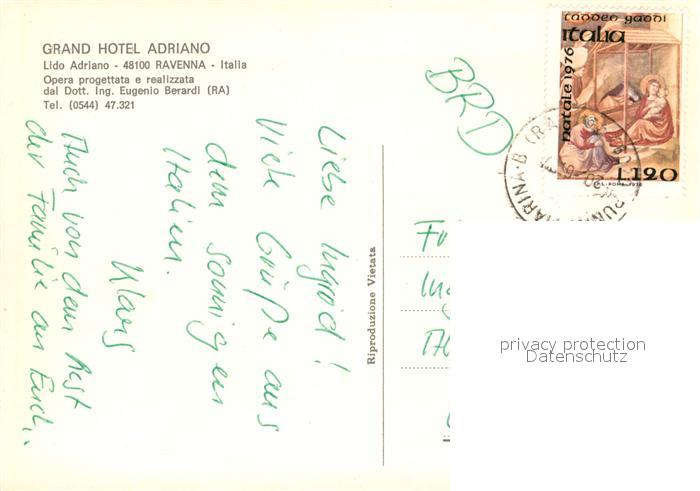 GRAND HOTEL ADRIANO
Lido Adriano - 48100 RAVENNA - Italia
Opera progettata e realizzata
dal Dott. Ing. Eugenio Berardi (RA)
Tel. (0544) 47.321
BRD
taddeo gaddi
italia
natale 1976
L.120
Liebe Ingrid!
Viele Grüße aus
dem sonnigen
Italien.
Klaus
Auch von dem Rest
der Familie an Euch..
Riproduzione Vietata
Fu
Ing
privacy protection
Datenschutz